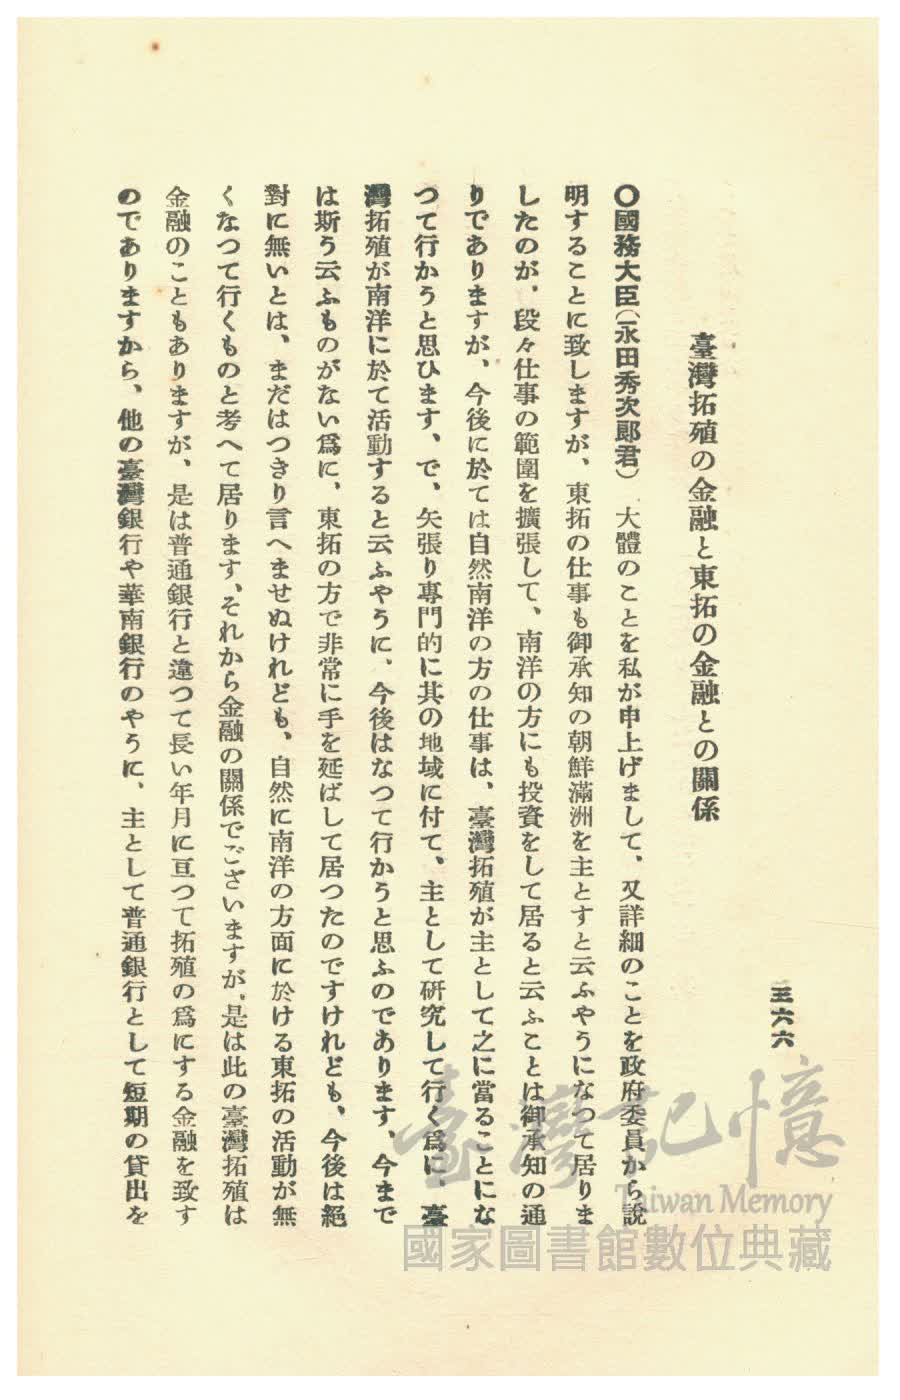 三六六
臺灣拓殖の金融と東拓の金融との關係
〇國務大臣(永田秀次郎君) 大體のことを私が申上げまして、又詳細のことを政府委員から說
明することに致しますが、東拓の仕事も御承知の朝鮮滿洲を主とすと云ふやうになつて居りま
したのが、段々仕事の範圍を擴張して、南洋の方にも投資をして居ると云ふことは御承知の通
りでありますが、今後に於ては自然南洋の方の仕事は、臺灣拓殖が主として之に當ることにな
つて行かうと思ひます、で、矢張り專門的に其の地域に付て、主として硏究して行く爲に、臺
灣拓殖が南洋に於て活動すると云ふやうに、今後はなつて行かうと思ふのであります、今まで
は斯う云ふものがない爲に、東拓の方で非常に手を延ばして居つたのですけれども、今後は絕
對に無いとは、まだはつきり言へませぬけれども、自然に南洋の方面に於ける東拓の活動が無
くなつて行くものと考へて居ります、それから金融の關係でございますが、是は此の臺灣拓殖は
金融のこともありますが、是は普通銀行と違つて長い年月に亙つて拓殖の爲にする金融を致す
のでありますから、他の臺灣銀行や華南銀行のやうに、主として普通銀行として短期の貸出を
臺灣記憶
Taiwan Memory
國家圖書館數位典藏